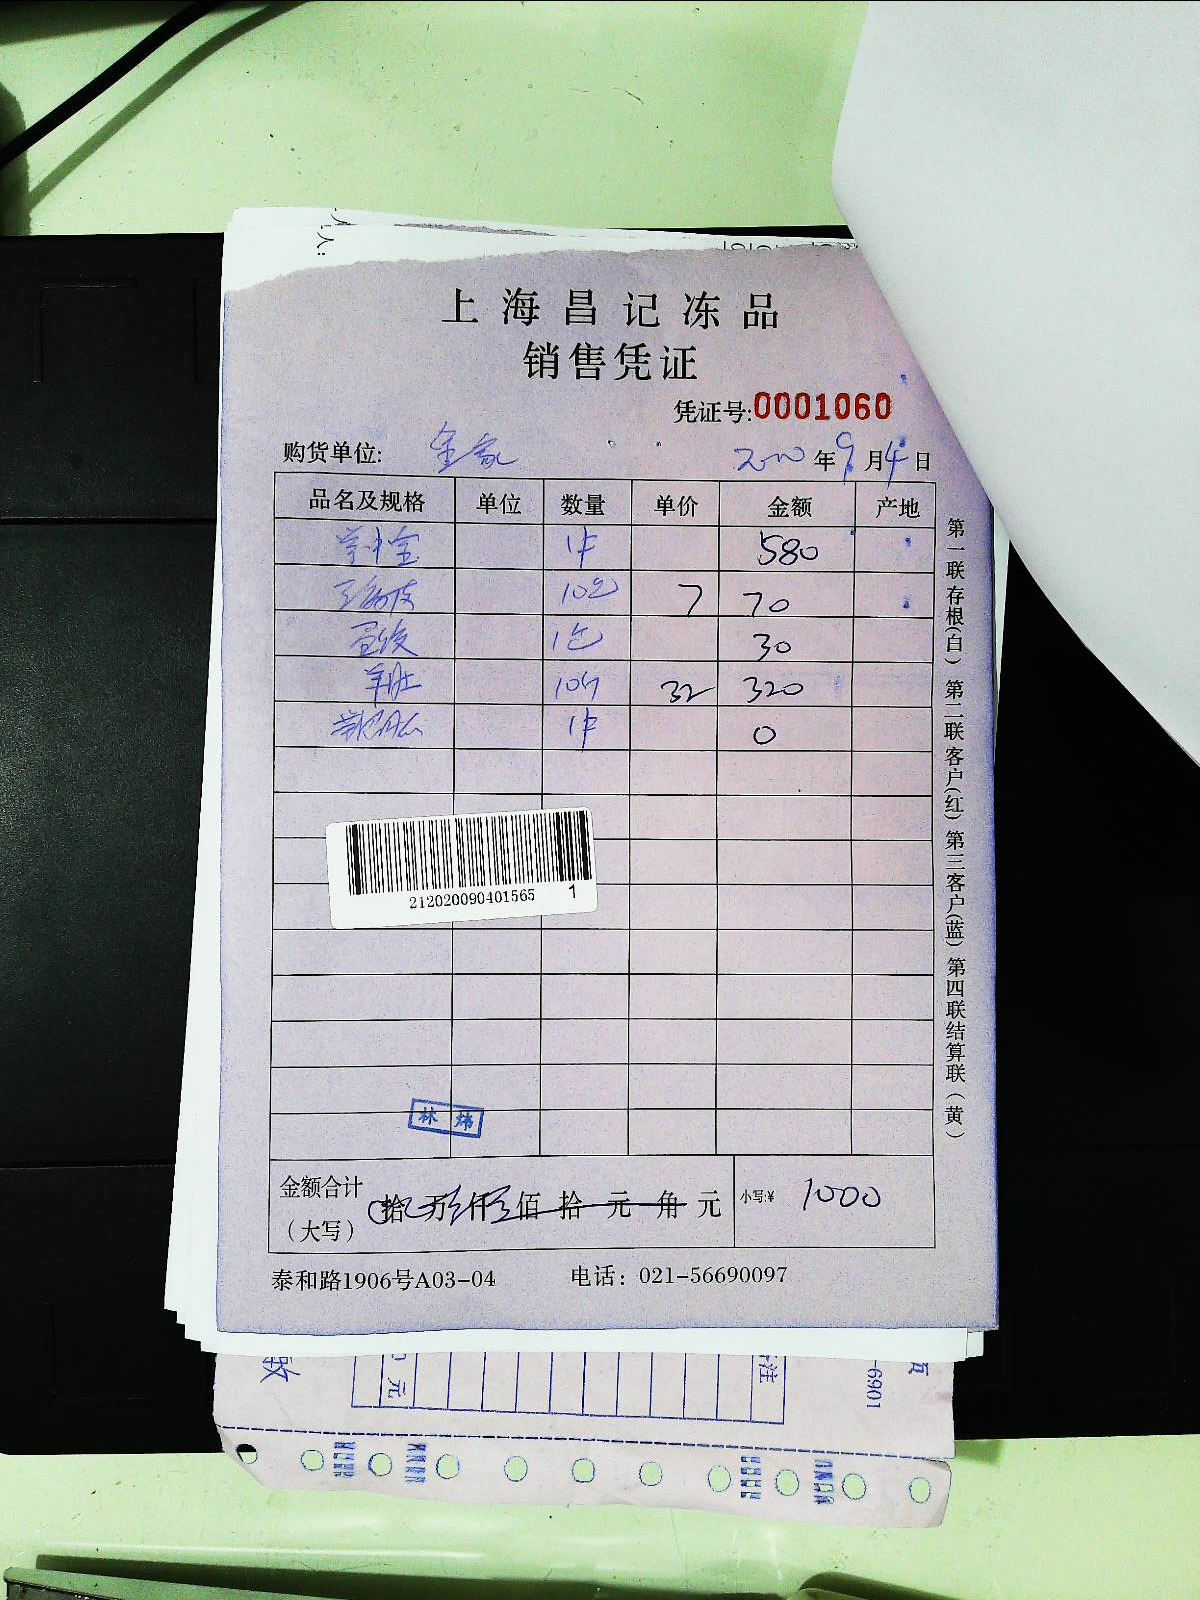 上海昌记冻品
销售凭证
凭证号:0001060
购货单位: 年9月4日
品名及规格 单位 数量 单价 金额 产地
1件 580
10包 7 70
1包 30
羊肚 10斤 32 320
1件 0
212020090401565 1
林炜
金额合计（大写） 拾万仟佰拾元角元 小写:¥ 1000
泰和路1906号A03-04 电话：021-56690097
第一联存根(白) 第二联客户(红) 第三客户(蓝) 第四联结算联(黄)
元
-6901